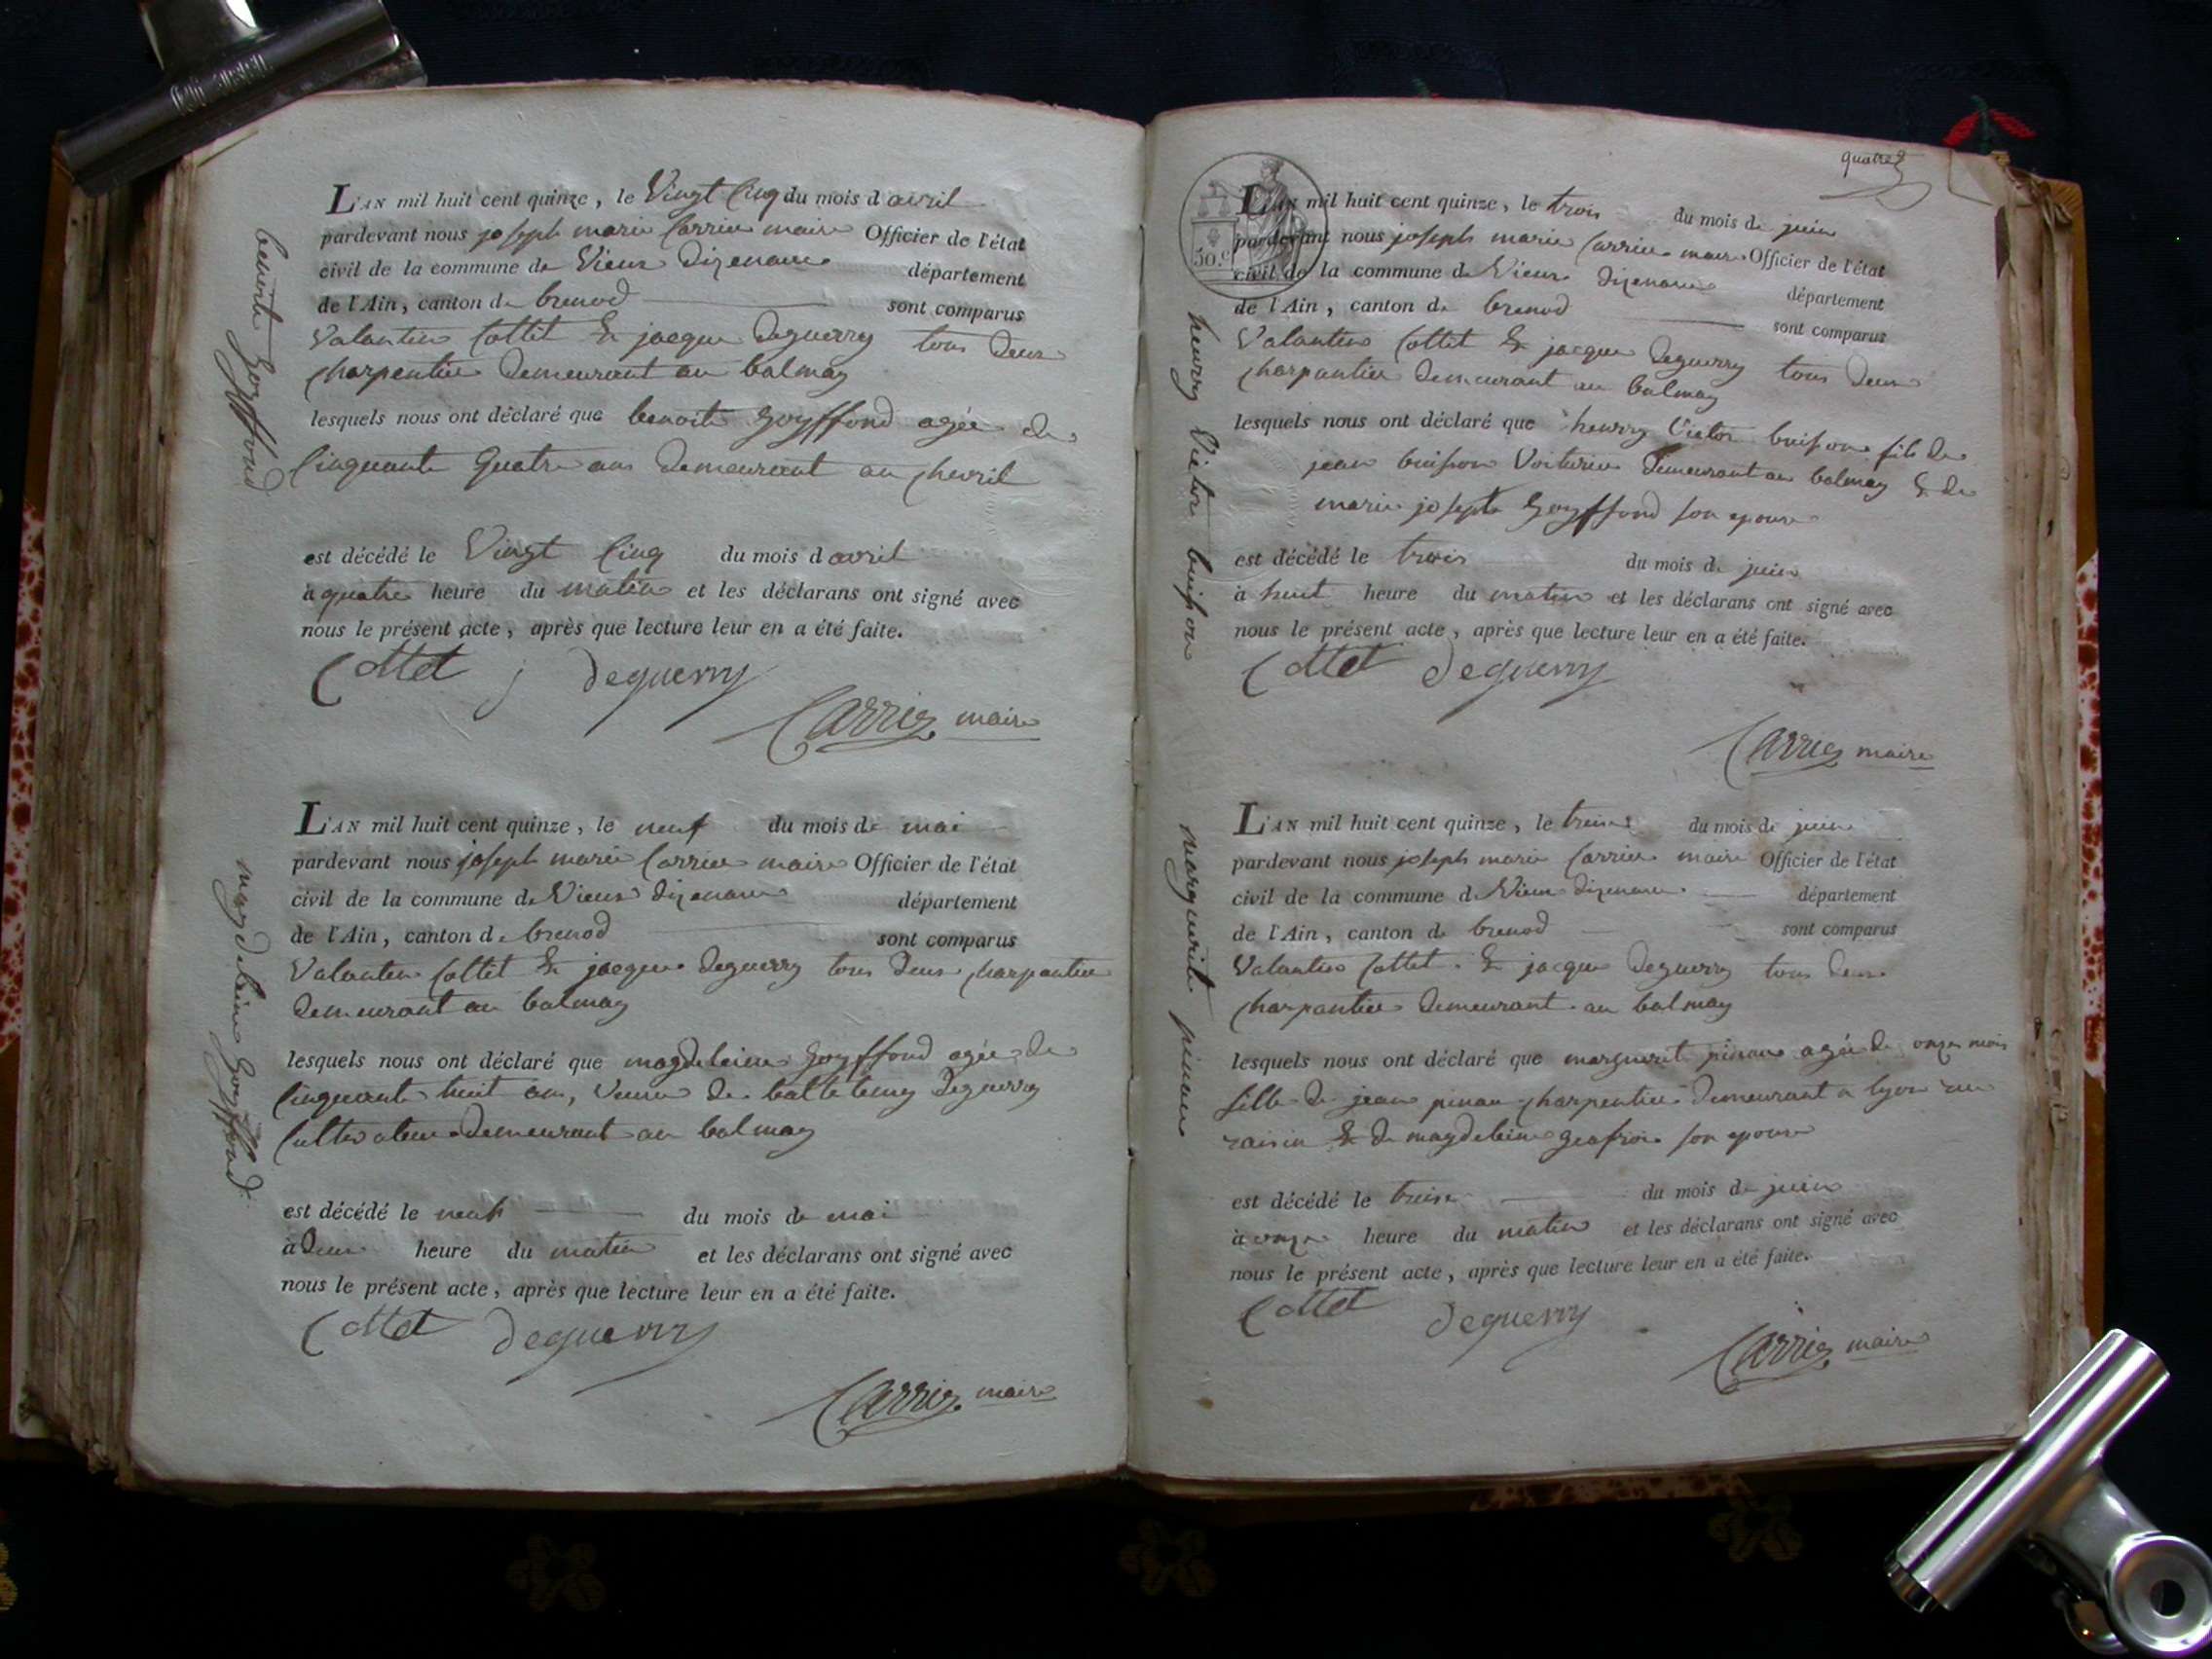 benoite Goyffond
L'AN mil huit cent quinze, le Vingt Cinq du mois d avril
pardevant nous joseph marie Carrier maire Officier de l'état
civil de la commune de Vieux Dizenave département
de l'Ain, canton de brenod sont comparus
Valantin Cottet & jacque Deguerry tous Deux
charpentier Demeurant au balmay
lesquels nous ont déclaré que benoite Goyffond agée de
Cinquante Quatre ans Demeurant au chevril
est décédé le Vingt Cinq du mois d avril
à quatre heure du matin et les déclarans ont signé avec
nous le présent acte, après que lecture leur en a été faite.
Cottet j Deguerry
Carrier maire
magdeleine Goyffond
L'AN mil huit cent quinze, le neuf du mois de mai
pardevant nous joseph marie Carrier maire Officier de l'état
civil de la commune de Vieux dizenave département
de l'Ain, canton de brenod sont comparus
Valantin Cottet & jacque Deguerry tous Deux charpantier
Demeurant au balmay
lesquels nous ont déclaré que magdeleine Goyffond agée de
Cinquante huit ans, Veuve de Deguerry
Cultivateur Demeurant au balmay
est décédé le neuf du mois de mai
à Deux heure du matin et les déclarans ont signé avec
nous le présent acte, après que lecture leur en a été faite.
Cottet Deguerry
Carrier maire
quatre
50.c
henry Victor buisson
L'AN mil huit cent quinze, le trois du mois de juin
pardevant nous joseph marie Carrier maire Officier de l'état
civil de la commune de Vieux dizenave département
de l'Ain, canton de brenod sont comparus
Valantin Cottet & jacque Deguerry tous Deux
charpantier Demeurant au balmay
lesquels nous ont déclaré que henry Victor buisson fils de
jean buisson Voiturier Demeurant au balmay & de
marie josephte Goyffond son epouse
est décédé le trois du mois de juin
à huit heure du matin et les déclarans ont signé avec
nous le présent acte, après que lecture leur en a été faite.
Cottet Deguerry
Carrier maire
marguerite pinau
L'AN mil huit cent quinze, le treise du mois de juin
pardevant nous joseph marie Carrier maire Officier de l'état
civil de la commune de Vieux dizenave département
de l'Ain, canton de brenod sont comparus
Valantin Cottet & jacque Deguerry tous Deux
charpantier Demeurant au balmay
lesquels nous ont déclaré que marguerite pinau agée de onze mois
fille de jean pinau charpentier Demeurant a lyon rue
raisin & de magdeleine geofroi son epouse
est décédé le treise du mois de juin
à onze heure du matin et les déclarans ont signé avec
nous le présent acte, après que lecture leur en a été faite.
Cottet Deguerry
Carrier maire